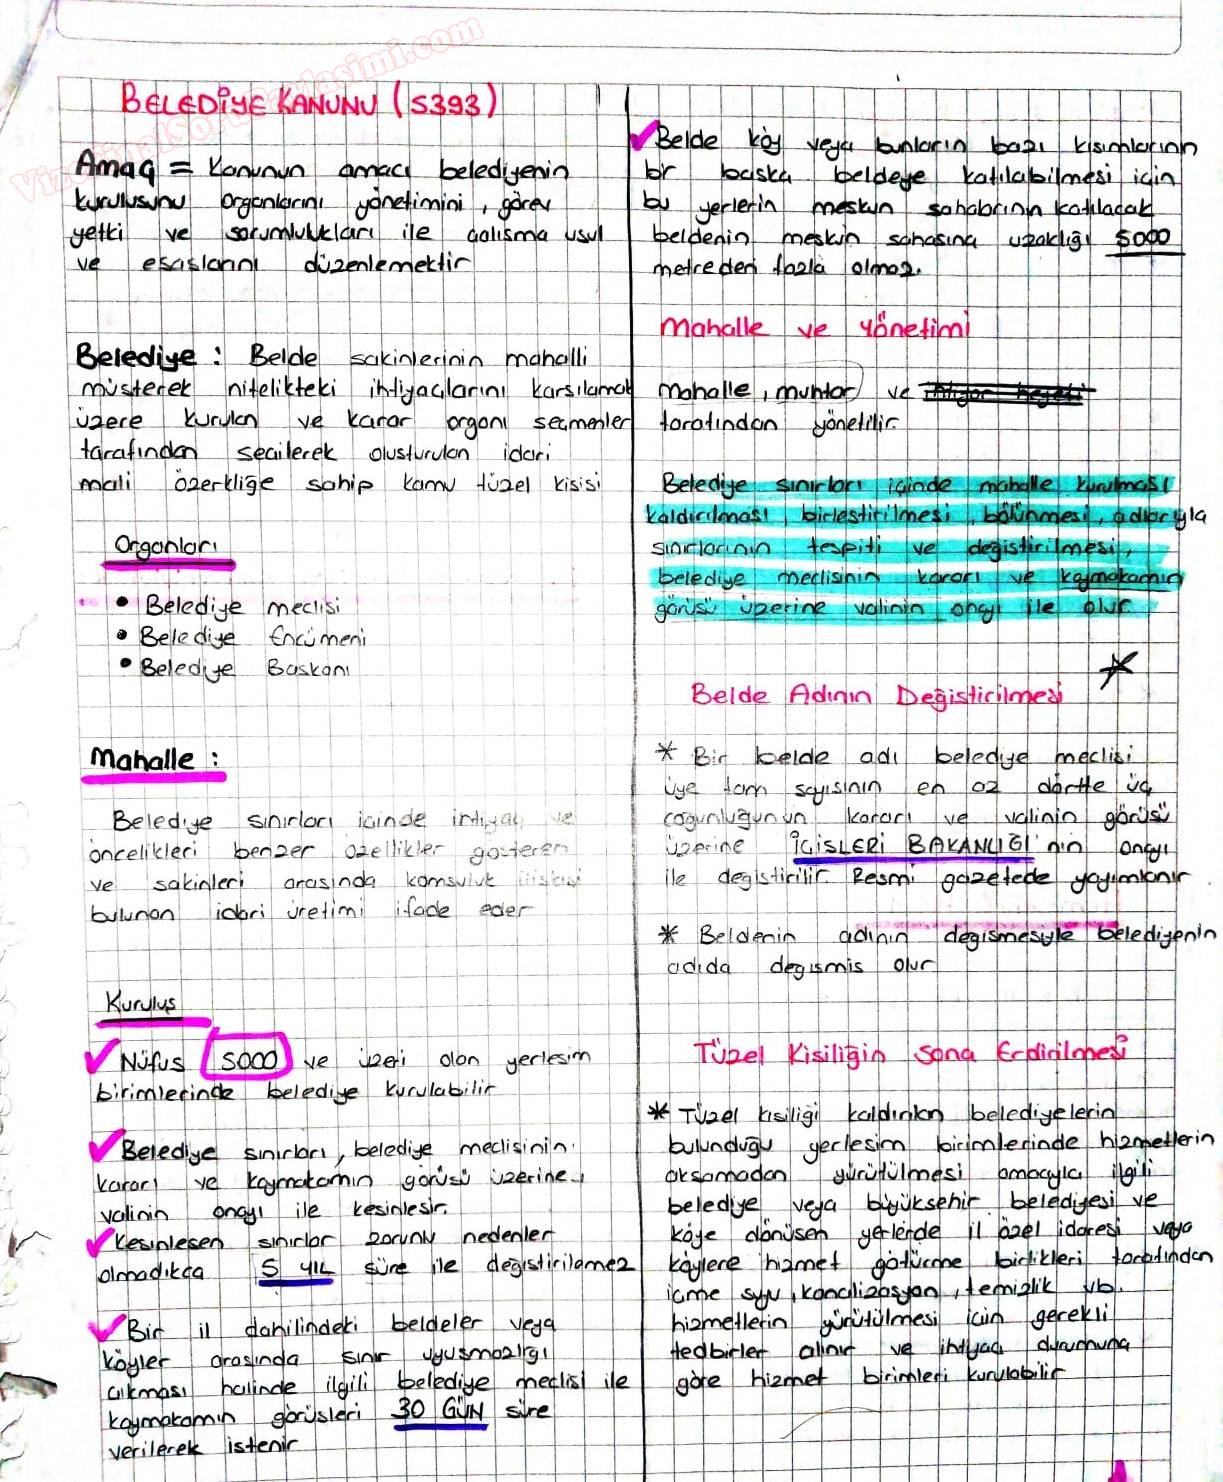 VizeFinalSoruPaylasimi.com
BELEDİYE KANUNU (5393)
Amaç = Kanunun amacı belediyenin
kurulusunu organlarını yönetimini, görev
yetki ve sorumlulukları ile calısma usul
ve esaslarını düzenlemektir
Belediye : Belde sakinlerinin mahalli
müsterek nitelikteki ihtiyaçlarını karsılamak
üzere kurulan ve karar organı secmenler
tarafından secilerek olusturulan idari
mali özerkliğe sahip kamu tüzel kisisi
Organları
• Belediye meclisi
• Belediye Encümeni
• Belediye Baskanı
Mahalle :
Belediye sınırları icinde ihtiyaç ve
öncelikleri benzer özellikler gösteren
ve sakinleri arasında komsuluk iliskisi
bulunan idari üretimi ifade eder
Kuruluş
✓ Nüfus 5000 ve üzeri olan yerlesim
birimlerinde belediye kurulabilir
✓ Belediye sınırları, belediye meclisinin
kararı ve kaymakamın görüsü üzerine,
valinin onayı ile kesinlesir.
✓ Kesinlesen sınırlar zorunlu nedenler
olmadıkca 5 YIL süre ile değistirilemez
✓ Bir il dahilindeki beldeler veya
köyler arasında sınır uyusmazlığı
cıkması halinde ilgili belediye meclisi ile
kaymakamın görüsleri 30 GÜN süre
verilerek istenir
✓ Belde köy veya bunların bazı kısımlarının
bir baska beldeye katılabilmesi icin
bu yerlerin meskun sahalarının katılacak
beldenin meskun sahasına uzaklığı 5000
metreden fazla olmaz.
Mahalle ve Yönetimi
Mahalle, muhtar ve ihtiyar heyeti
tarafından yönetilir.
Belediye sınırları içinde mahalle kurulması
kaldırılması, birlestirilmesi, bölünmesi, adlarıyla
sınırlarının tespiti ve değistirilmesi,
belediye meclisinin kararı ve kaymakamın
görüsü üzerine valinin onayı ile olur
Belde Adının Değistirilmesi
* Bir belde adı belediye meclisi
üye tam sayısının en az dörtte üç
coğunluğunun kararı ve valinin görüsü
üzerine İÇİSLERİ BAKANLIĞI'nin onayı
ile degistirilir. Resmi gazetede yayımlanır
* Beldenin adının degismesiyle belediyenin
adıda degısmis olur
Tüzel Kisiliğin Sona Erdirilmesi
* Tüzel kisiliği kaldırılan belediyelerin
bulunduğu yerlesim birimlerinde hizmetlerin
aksamadan yürütülmesi amacıyla ilgili
belediye veya büyüksehir belediyesi ve
köye dönüsen yerlerde il özel idaresi veya
köylere hizmet götürme birlikleri tarafından
icme suyu, kanalizasyon, temizlik vb.
hizmetlerin yürütülmesi icin gerekli
tedbirler alınır ve ihtiyaç durumuna
göre hizmet birimleri kurulabilir